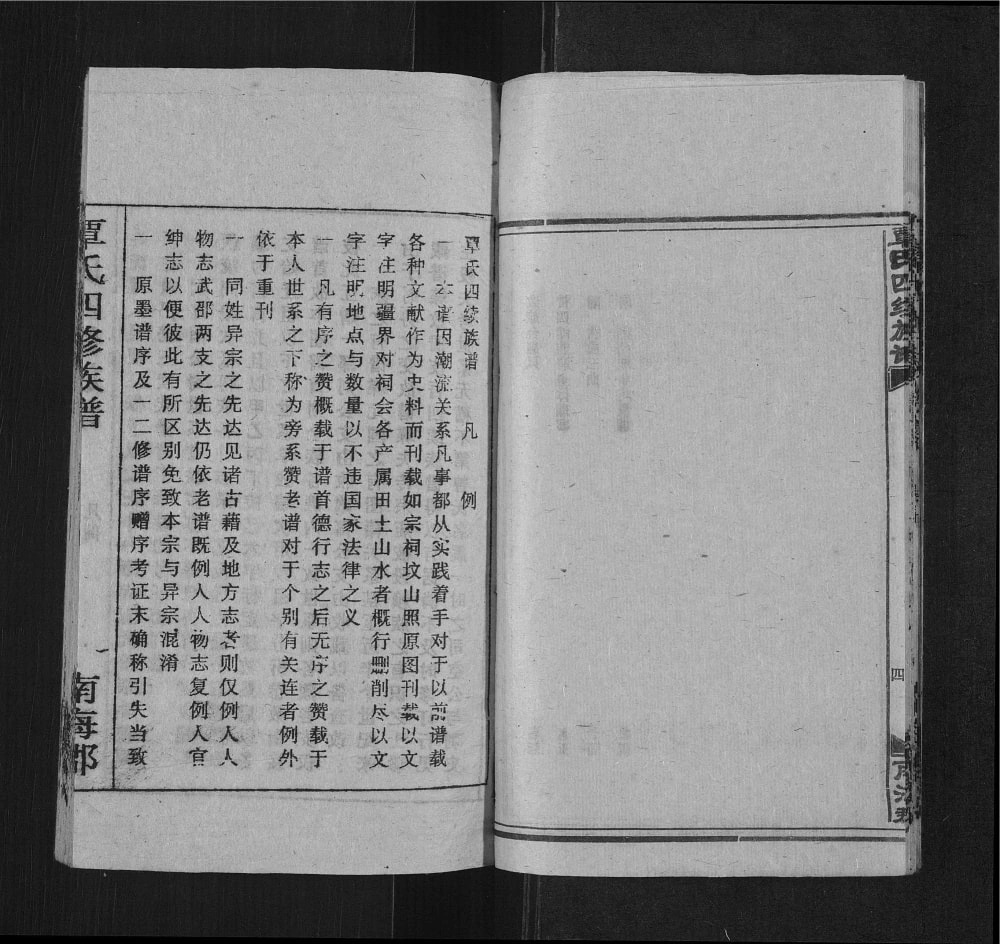 覃氏四续族谱
四
覃氏四续族谱 凡 例
一 本谱因潮流关系凡事都从实践着手对于以前谱载
各种文献作为史料而刊载如宗祠坟山照原图刊载以文
字注明疆界对祠会各产属田土山水者概行删削尽以文
字注明地点与数量以不违国家法律之义
一 凡有序之赞概载于谱首德行志之后无序之赞载于
本人世系之下称为旁系赞老谱对于个别有关连者例外
依于重刊
一 同姓异宗之先达见诸古藉及地方志者则仅例人人
物志武邵两支之先达仍依老谱既例人人物志复例人官
绅志以便彼此有所区别免致本宗与异宗混淆
一 原墨谱序及一二修谱序赠序考证末确称引失当致
覃氏四修族普
南海郡